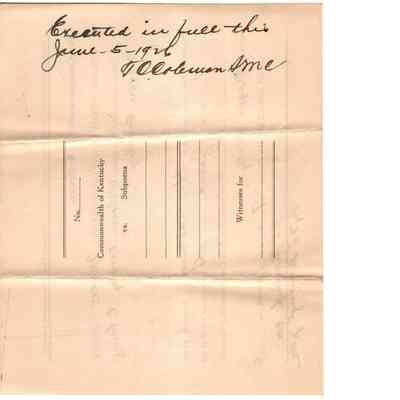 Executed in full this
June-5-1926
T.O. Coleman S M C
No.
Commonwealth of Kentucky
vs. Subpoena
Witnesses for